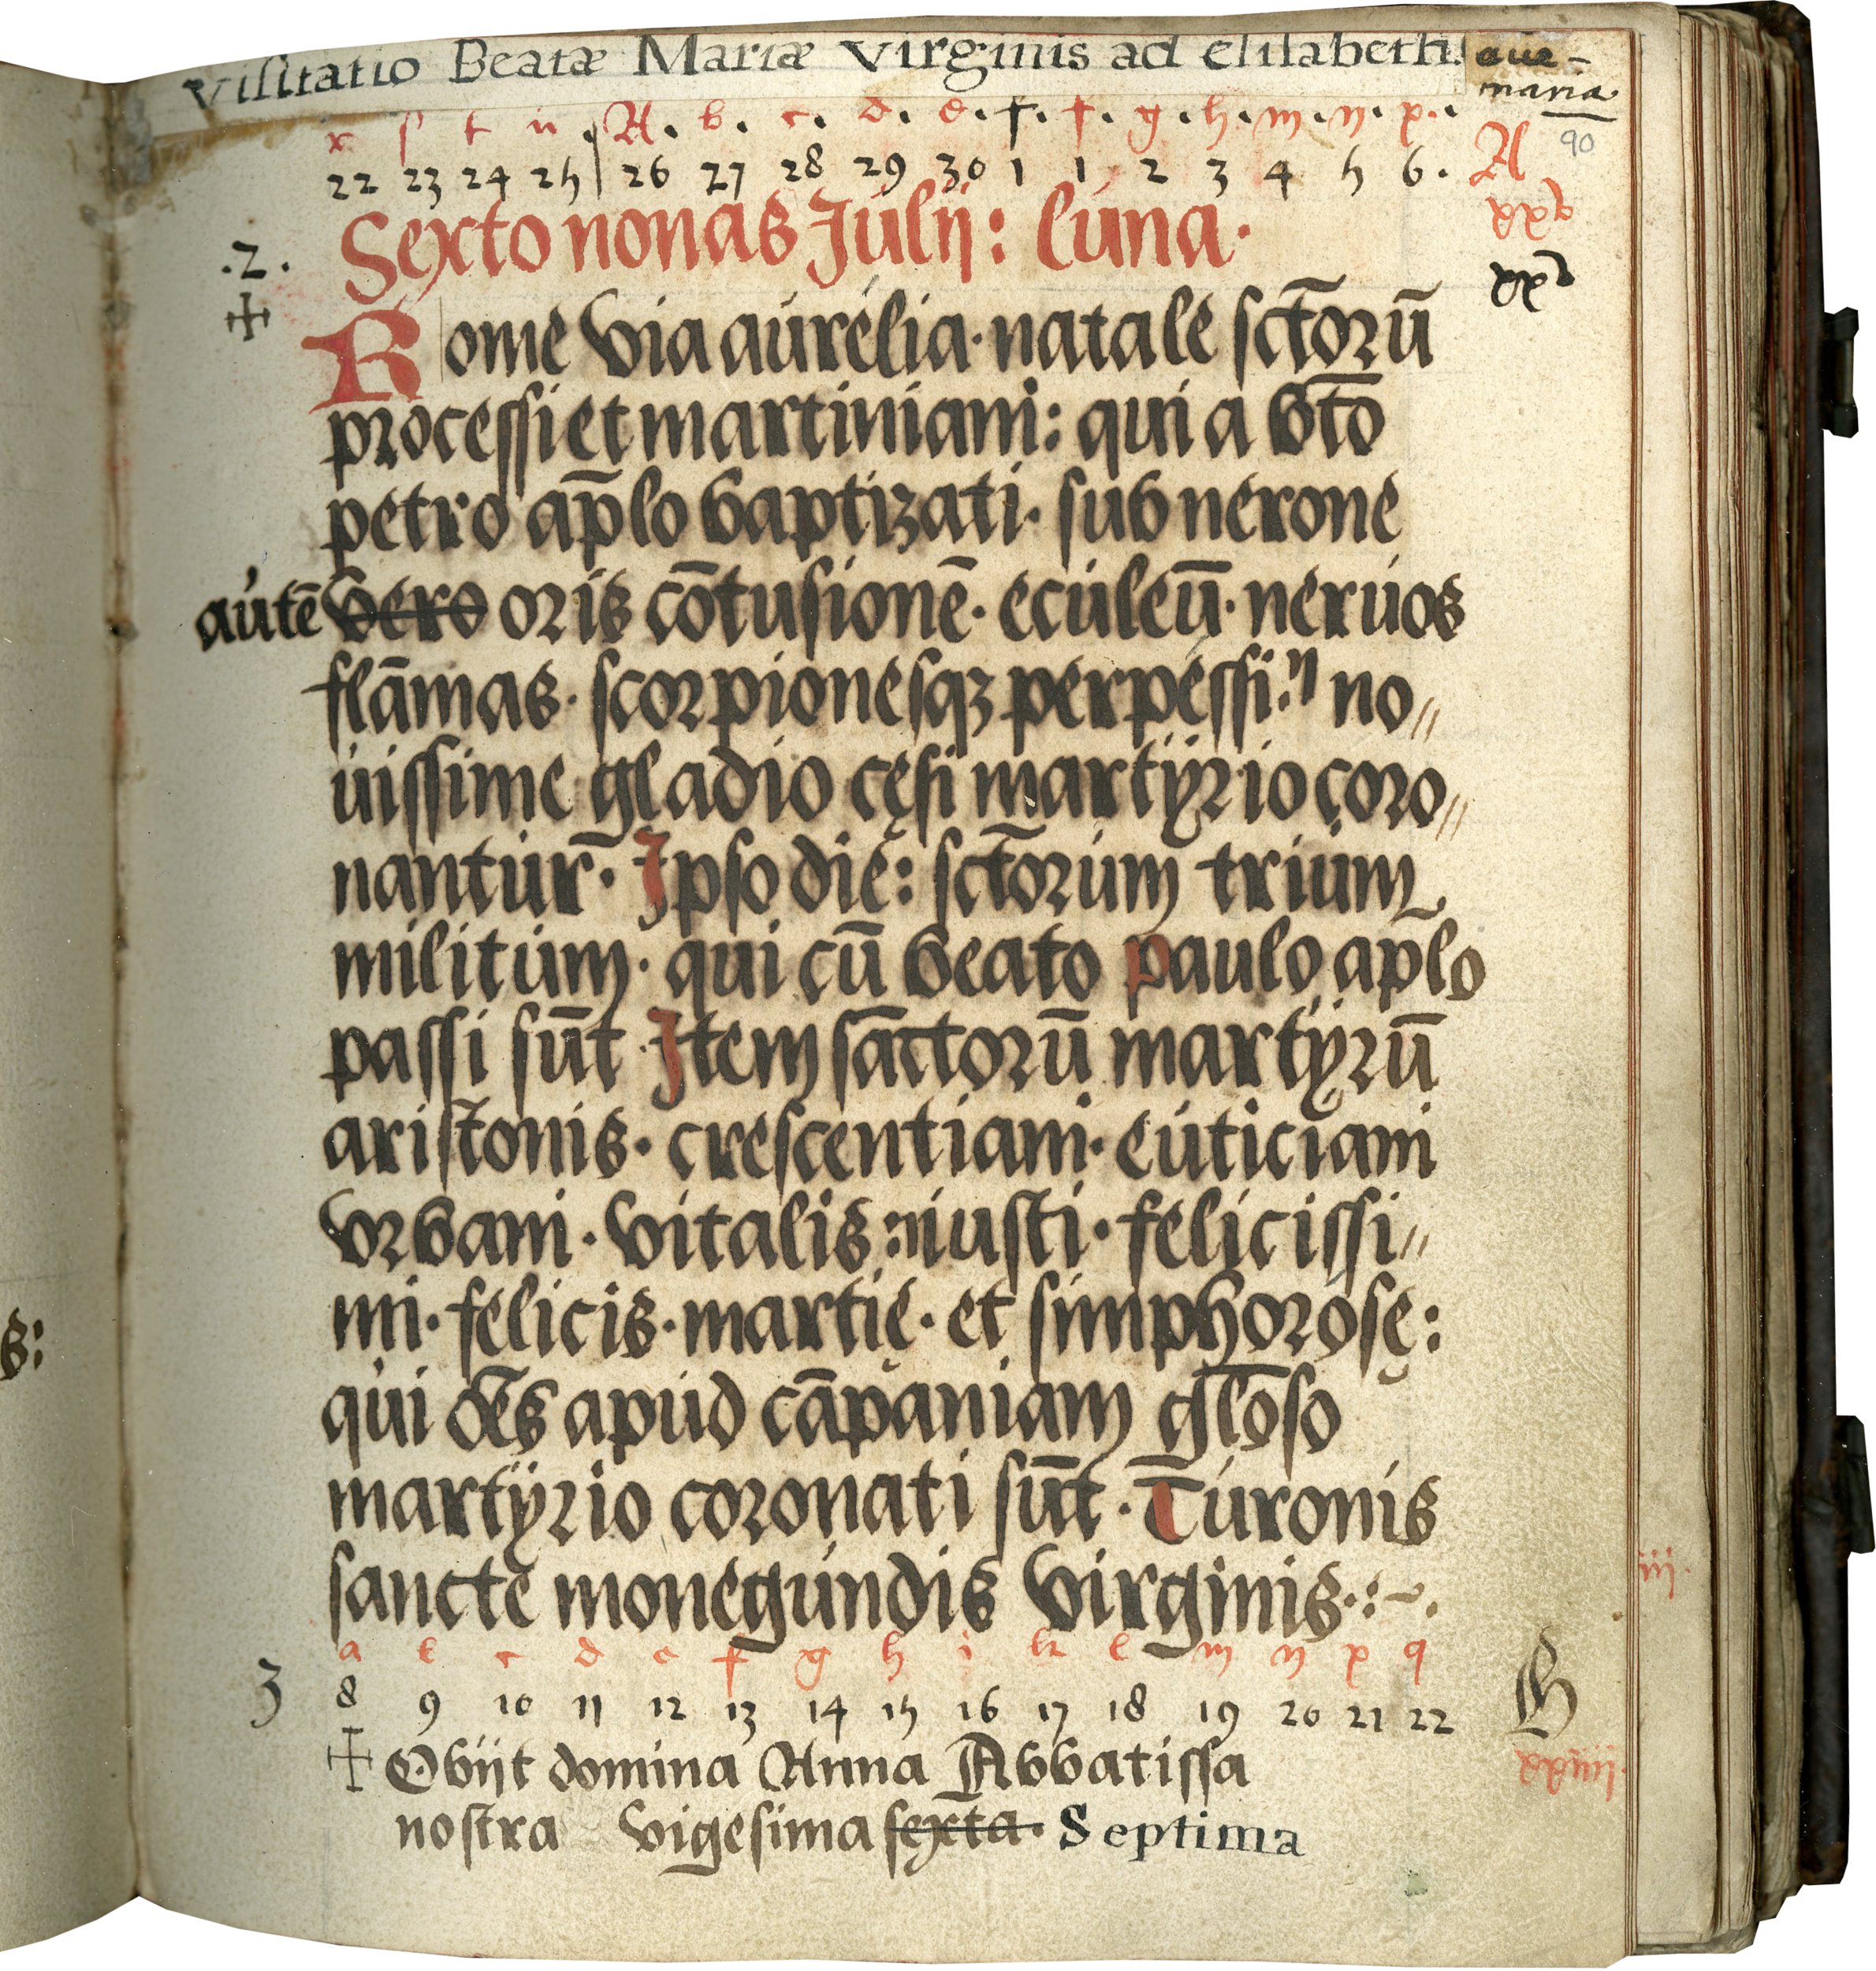 Visitatio Beatæ Mariæ Virginis ad elisabeth. aue-
maria
90
r s t u . A . b . c . d . e . f . f . g . h . m . n . p .
22 23 24 25 | 26 27 28 29 30 1 1 2 3 4 5 6 . A
.2. Sexto nonas Julij: luna.
Rome via aurelia · natale sctorũ
processi et martiniani: qui a bto
petro aplo baptizati · sub nerone
autẽ vero oris cõtusionẽ · eculeũ · neruos
flãmas · scorpionesqꝫ perpessi: no〃
uissime gladio cęsi martÿrio coro〃
nantur · Ipso die: sctorum trium
militum · qui cũ beato paulo aplo
passi sũt Item sãctorũ martÿrũ
aristonis · crescentiani · euticiani
vrbani · vitalis: iusti · felicissi〃
mi · felicis · martię · et simphorosę:
qui oẽs apud cãpaniam gloso
martÿrio coronati sũt · Turonis
sanctę monegundis virginis·:~.
a b c d e f g h i k l m n p q
3 8 9 10 11 12 13 14 15 16 17 18 19 20 21 22
✝ Obijt domina Anna Abbatissa
nostra vigesima sexta. Septima
s:
iij.